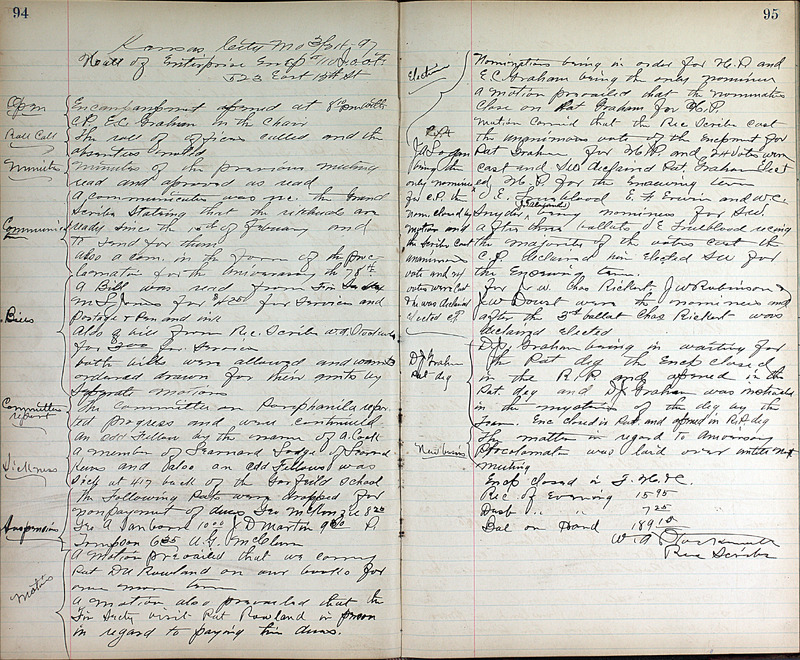 94
Kansas City Mo 3/24, 97
Hall of Enterprise Encp
523 East 15th St
Open
Encampment opened at 8
C.P. E.C. Graham in the Chair
Roll Call
The roll of officers called and the
absentees noted
Minutes
minutes of the previous meeting
read and aproved as read
Communic
A communication was rec. the Grand
Scribe Stating that the are
ready since the 15th of february and
to send for them
also a com. in the form of the
for the aniversary the 78th
Bills
A Bill was read from Fin
for $4200 for Services and
Postage & Pen and ink
Also a bill from Rec. Scribe W.A.
for $300 for Services
both bills were allowed and
ordered drawn for their amts by
Seperate motions
Committee report
The Committee on reper
ted progress and were continued
Sickness
an odd Fellow by the name of A. Cook
a member of Learnard Lodge of
Kans and also an odd Fellows was
Sick at 417 back of the Garfield School
Suspension
The following Pats were dropped for
nonpayment of dues Geo 820
Geo A Sanborn 1000 J D Martin
Simpson 635 A.G. McGlenn
Motion
A motion prevailed that we carry
Pat D.H. Rowland on our books for
one more term
A motion also prevailed that the
Fin Secty visit Pat Rowland in
in regard to paying his dues.
95
Election
Nominations being in order for H.P. and
E.C. Graham being the only nominee
a motion prevailed that the nominations
close on Pat Graham for H.P.
Motion Carried that the Rec Scribe cast
the unanimous vote of the Encpment for
Pat Graham for H.P. and 24 votes were
cast and was declared Pat. Graham Elect
ed H.P. for the ensueing term
J A Logan
being the
only nominee
for C.P. the
nom. closed by
motion and
the Scribe Cast
unanimous
vote and 24
votes were Cast
& he was declared
elected C.P.
J E. Trueblood E F Erwin and W.C.
Snyder being nominees for S.W.
after three ballots E Trueblood receiving
the majority of the votes cast the
C.P. declared him Elected SW for
the Ensueing term.
for J.W. Chas Rickert, J W Rubinson &
J W Doust were the nominees and
after the 3rd ballot Chas Rickert was
declared elected
D J Graham
Pat deg
D.J. Graham being in waiting for
the Pat deg the Encp closed
in the R.P and opened in the
Pat. deg and D J Graham was instructed
in the mysteries of the deg by the
Team. Enc closed in Pat. and opened in R.P. deg
New business
The matter in regard to Aniversary
Proclamation was laid over untill next
meeting
Encp closed in F. H. & C.
Rec of Evening 1595
Disb " " 725
Bal on Hand 18910
W. A.
Rec Scribe